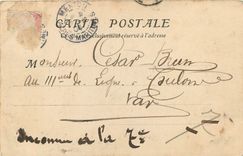 CARTE POSTALE
exclusivement réservé à l'adresse
Monsieur César Brun
au 111ème de Ligne à Toulon
Var
Inconnu à la 7e